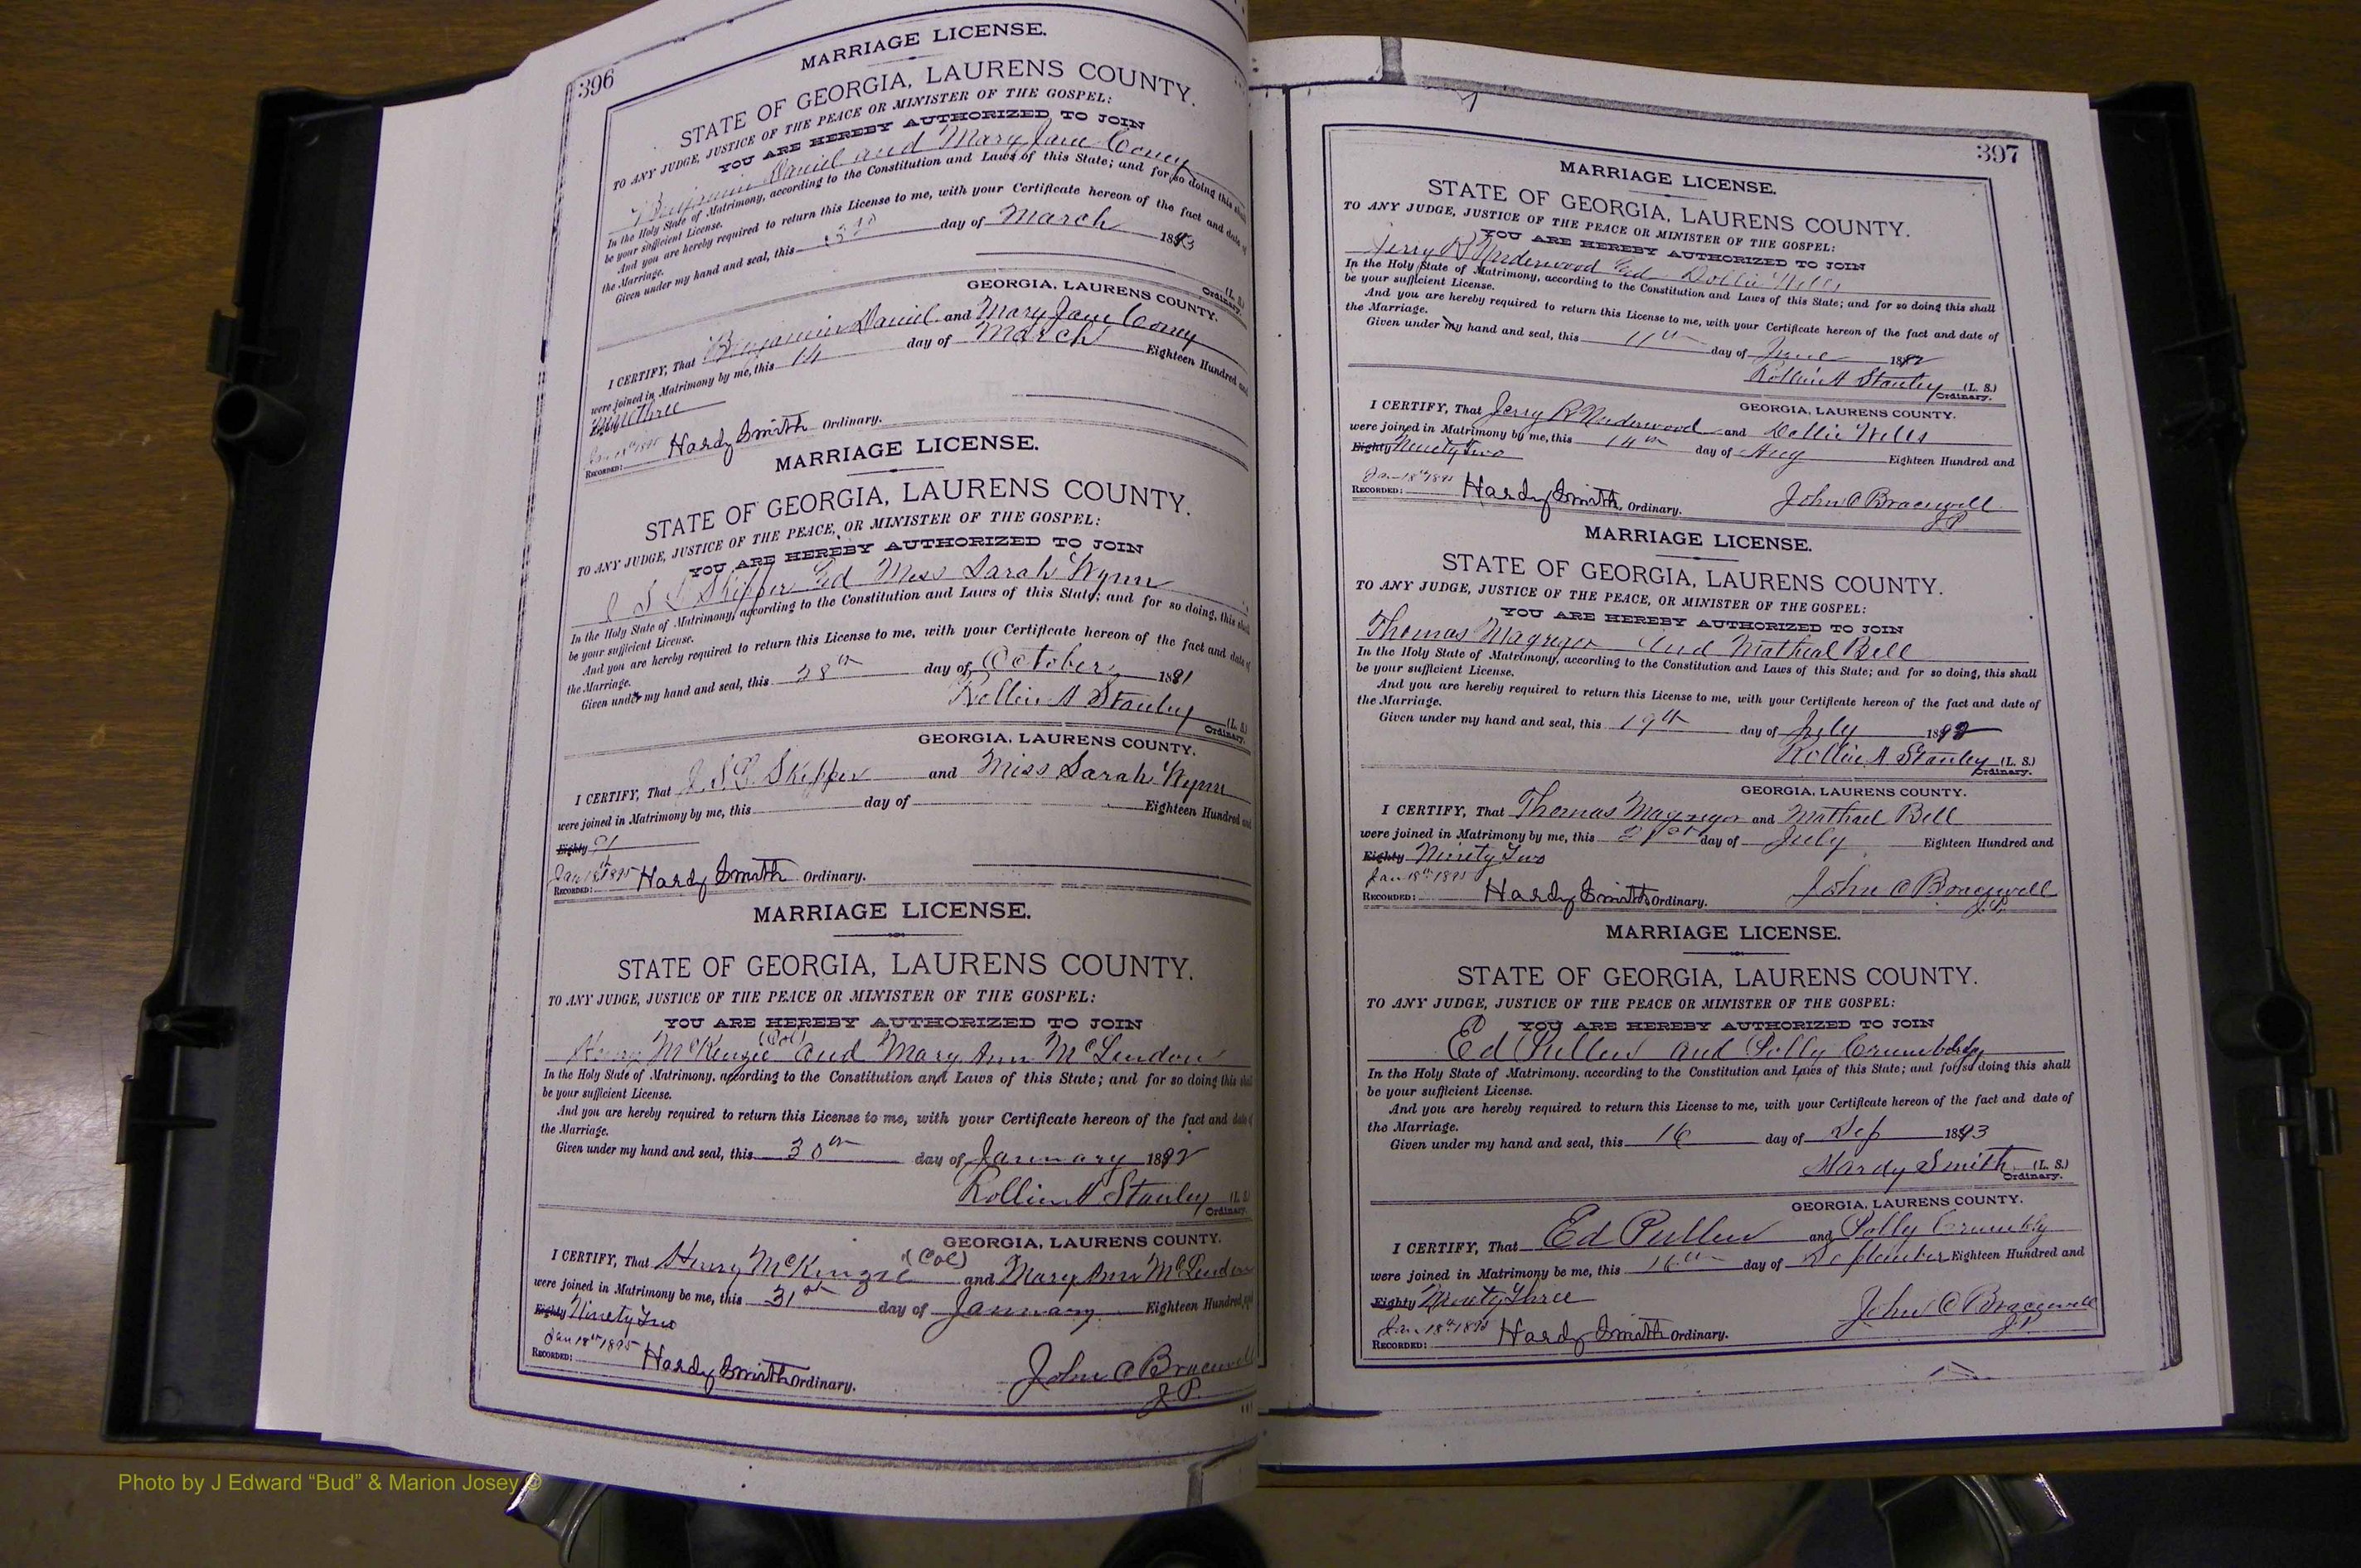 396
MARRIAGE LICENSE.
STATE OF GEORGIA, LAURENS COUNTY.
TO ANY JUDGE, JUSTICE OF THE PEACE OR MINISTER OF THE GOSPEL:
YOU ARE HEREBY AUTHORIZED TO JOIN
Benjamin Daniel and Mary Jane Coney
In the Holy State of Matrimony, according to the Constitution and Laws of this State; and for so doing this shall
be your sufficient License.
And you are hereby required to return this License to me, with your Certificate hereon of the fact and date of
the Marriage.
Given under my hand and seal, this day of March 1893
(L. S.)
Ordinary.
GEORGIA, LAURENS COUNTY.
I CERTIFY, That Benjamin Daniel and Mary Jane Coney
were joined in Matrimony by me, this 14 day of March Eighteen Hundred and
Three
RECORDED: Jan 18th 1895 Hardy Smith Ordinary.
MARRIAGE LICENSE.
STATE OF GEORGIA, LAURENS COUNTY.
TO ANY JUDGE, JUSTICE OF THE PEACE, OR MINISTER OF THE GOSPEL:
YOU ARE HEREBY AUTHORIZED TO JOIN
J S L Skipper and Miss Sarah Wynn
In the Holy State of Matrimony, according to the Constitution and Laws of this State; and for so doing, this shall
be your sufficient License.
And you are hereby required to return this License to me, with your Certificate hereon of the fact and date of
the Marriage.
Given under my hand and seal, this 28th day of October 1891
Rollin A Stanley (L. S.)
Ordinary.
GEORGIA, LAURENS COUNTY.
I CERTIFY, That J. S. L. Skipper and Miss Sarah Wynn
were joined in Matrimony by me, this day of Eighteen Hundred and
Eighty 91
Jan 18th 1895
RECORDED: Hardy Smith Ordinary.
MARRIAGE LICENSE.
STATE OF GEORGIA, LAURENS COUNTY.
TO ANY JUDGE, JUSTICE OF THE PEACE OR MINISTER OF THE GOSPEL:
YOU ARE HEREBY AUTHORIZED TO JOIN
Henry McKenzie (Col) and Mary Ann McLendon
In the Holy State of Matrimony, according to the Constitution and Laws of this State; and for so doing this shall
be your sufficient License.
And you are hereby required to return this License to me, with your Certificate hereon of the fact and date of
the Marriage.
Given under my hand and seal, this 30th day of January 1892
Rollin A Stanley (L. S.)
Ordinary.
GEORGIA, LAURENS COUNTY.
I CERTIFY, That Henry McKenzie (Col) and Mary Ann McLendon
were joined in Matrimony be me, this 31st day of January Eighteen Hundred and
Eighty Ninety Two
Jan 18th 1895
RECORDED: Hardy Smith Ordinary.
John C Bracewell
J.P.
397
MARRIAGE LICENSE.
STATE OF GEORGIA, LAURENS COUNTY.
TO ANY JUDGE, JUSTICE OF THE PEACE OR MINISTER OF THE GOSPEL:
YOU ARE HEREBY AUTHORIZED TO JOIN
Jerry R Underwood and Dollie Wells
In the Holy State of Matrimony, according to the Constitution and Laws of this State; and for so doing this shall
be your sufficient License.
And you are hereby required to return this License to me, with your Certificate hereon of the fact and date of
the Marriage.
Given under my hand and seal, this 11th day of June 1892
Rollin A Stanley (L. S.)
Ordinary.
GEORGIA, LAURENS COUNTY.
I CERTIFY, That Jerry R Underwood and Dollie Wells
were joined in Matrimony by me, this 14th day of Aug Eighteen Hundred and
Eighty Ninety Two
Jan 18th 1895
RECORDED: Hardy Smith, Ordinary.
John C Bracewell
J.P.
MARRIAGE LICENSE.
STATE OF GEORGIA, LAURENS COUNTY.
TO ANY JUDGE, JUSTICE OF THE PEACE, OR MINISTER OF THE GOSPEL:
YOU ARE HEREBY AUTHORIZED TO JOIN
Thomas Magregor and Mathial Bell
In the Holy State of Matrimony, according to the Constitution and Laws of this State; and for so doing, this shall
be your sufficient License.
And you are hereby required to return this License to me, with your Certificate hereon of the fact and date of
the Marriage.
Given under my hand and seal, this 19th day of July 1892
Rollin A Stanley (L. S.)
Ordinary.
GEORGIA, LAURENS COUNTY.
I CERTIFY, That Thomas Magregor and Mathael Bell
were joined in Matrimony by me, this 21st day of July Eighteen Hundred and
Eighty Ninety Two
Jan 18th 1895
RECORDED: Hardy Smith Ordinary.
John C Bracewell
J.P.
MARRIAGE LICENSE.
STATE OF GEORGIA, LAURENS COUNTY.
TO ANY JUDGE, JUSTICE OF THE PEACE OR MINISTER OF THE GOSPEL:
YOU ARE HEREBY AUTHORIZED TO JOIN
Ed Pullen and Polly Crumbley
In the Holy State of Matrimony, according to the Constitution and Laws of this State; and for so doing this shall
be your sufficient License.
And you are hereby required to return this License to me, with your Certificate hereon of the fact and date of
the Marriage.
Given under my hand and seal, this 16 day of Sep 1893
Hardy Smith (L. S.)
Ordinary.
GEORGIA, LAURENS COUNTY.
I CERTIFY, That Ed Pullen and Polly Crumbly
were joined in Matrimony be me, this 16th day of September Eighteen Hundred and
Eighty Ninety Three
Jan 18th 1895
RECORDED: Hardy Smith Ordinary.
John C Bracewell
J.P.
Photo by J Edward “Bud” & Marion Josey ©